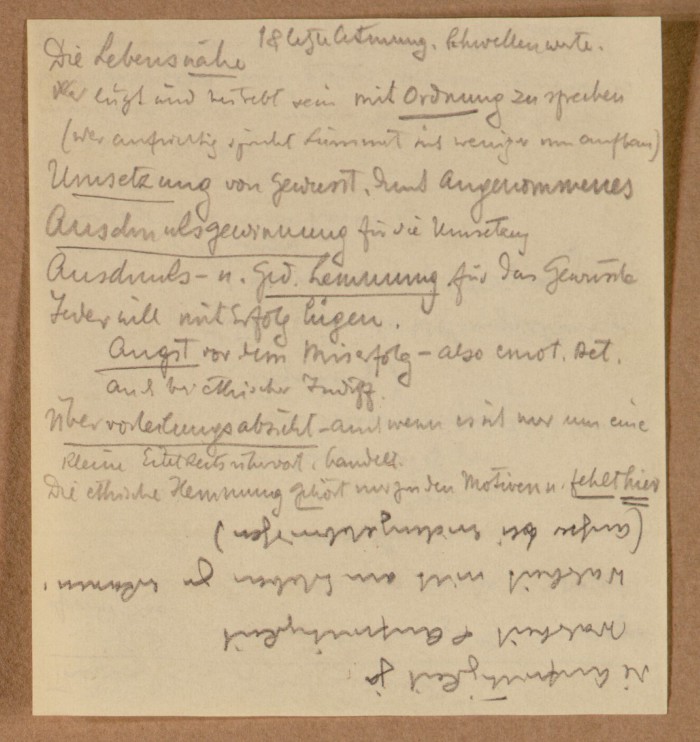 Die Lebensnähe
Schwellenwerte.
lügt und bestrebt sein mit Ordnung zu sprechen
(wer aufrichtig spricht kümmert sich weniger um aufbau)
Umsetzung von Gewusst. durch Angenommenes
Ausdrucksgewinnung für die Umsetzung
Ausdrucks- u. Ged. hemmung für das Gewusste
Jeder will mit Erfolg lügen.
Angst vor dem Misserfolg - also emot. Det.
auch bei ethischer Indiff.
Übervorteilungsabsicht - auch wenn es sich nur um eine
kleine handelt.
Die ethische Hemmung gehört nur zu den Motiven u. fehlt hier
die Aufrichtigkeit ja
Wahrheit Aufrichtigkeit
Wahrheit nicht am Erleben zu erkennen.
(außer bei